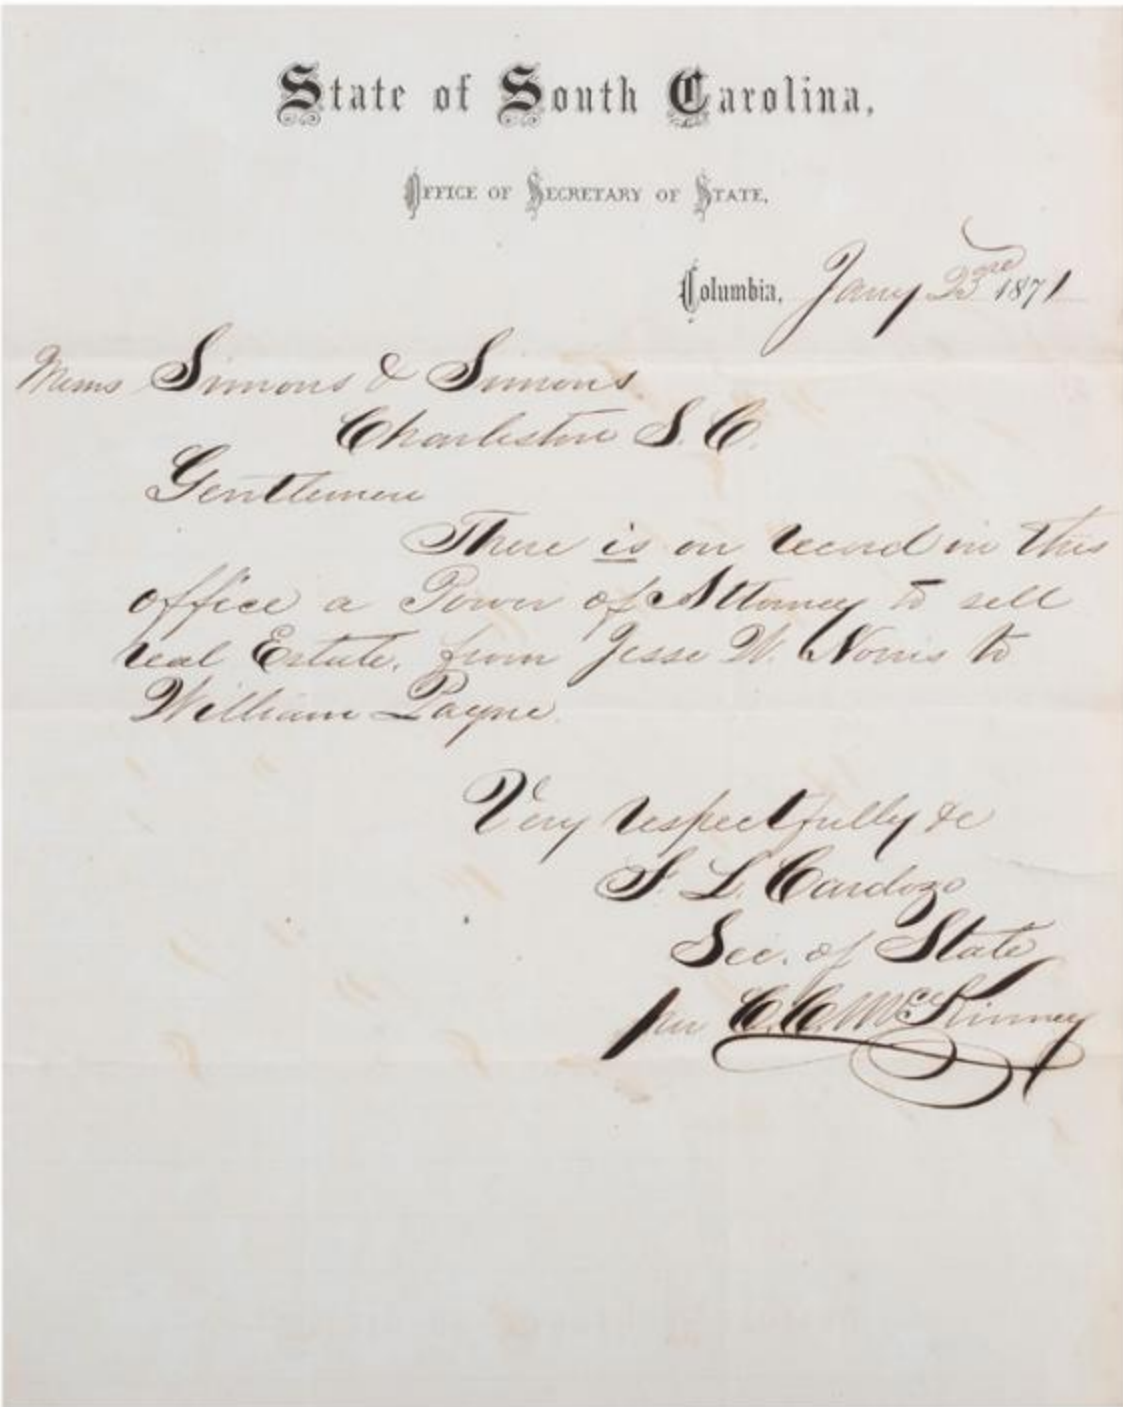 State of South Carolina,
Office of Secretary of State,
Columbia, Jany 23rd 1871
Messrs Simons & Simons
Charleston S. C.
Gentlemen
There is on record in this
office a Power of Attorney to sell
real Estate. from Jesse W. Norris to
William Payne.
Very respectfully &c
F. L. Cardozo
Sec. of State
per C. C. McKinney